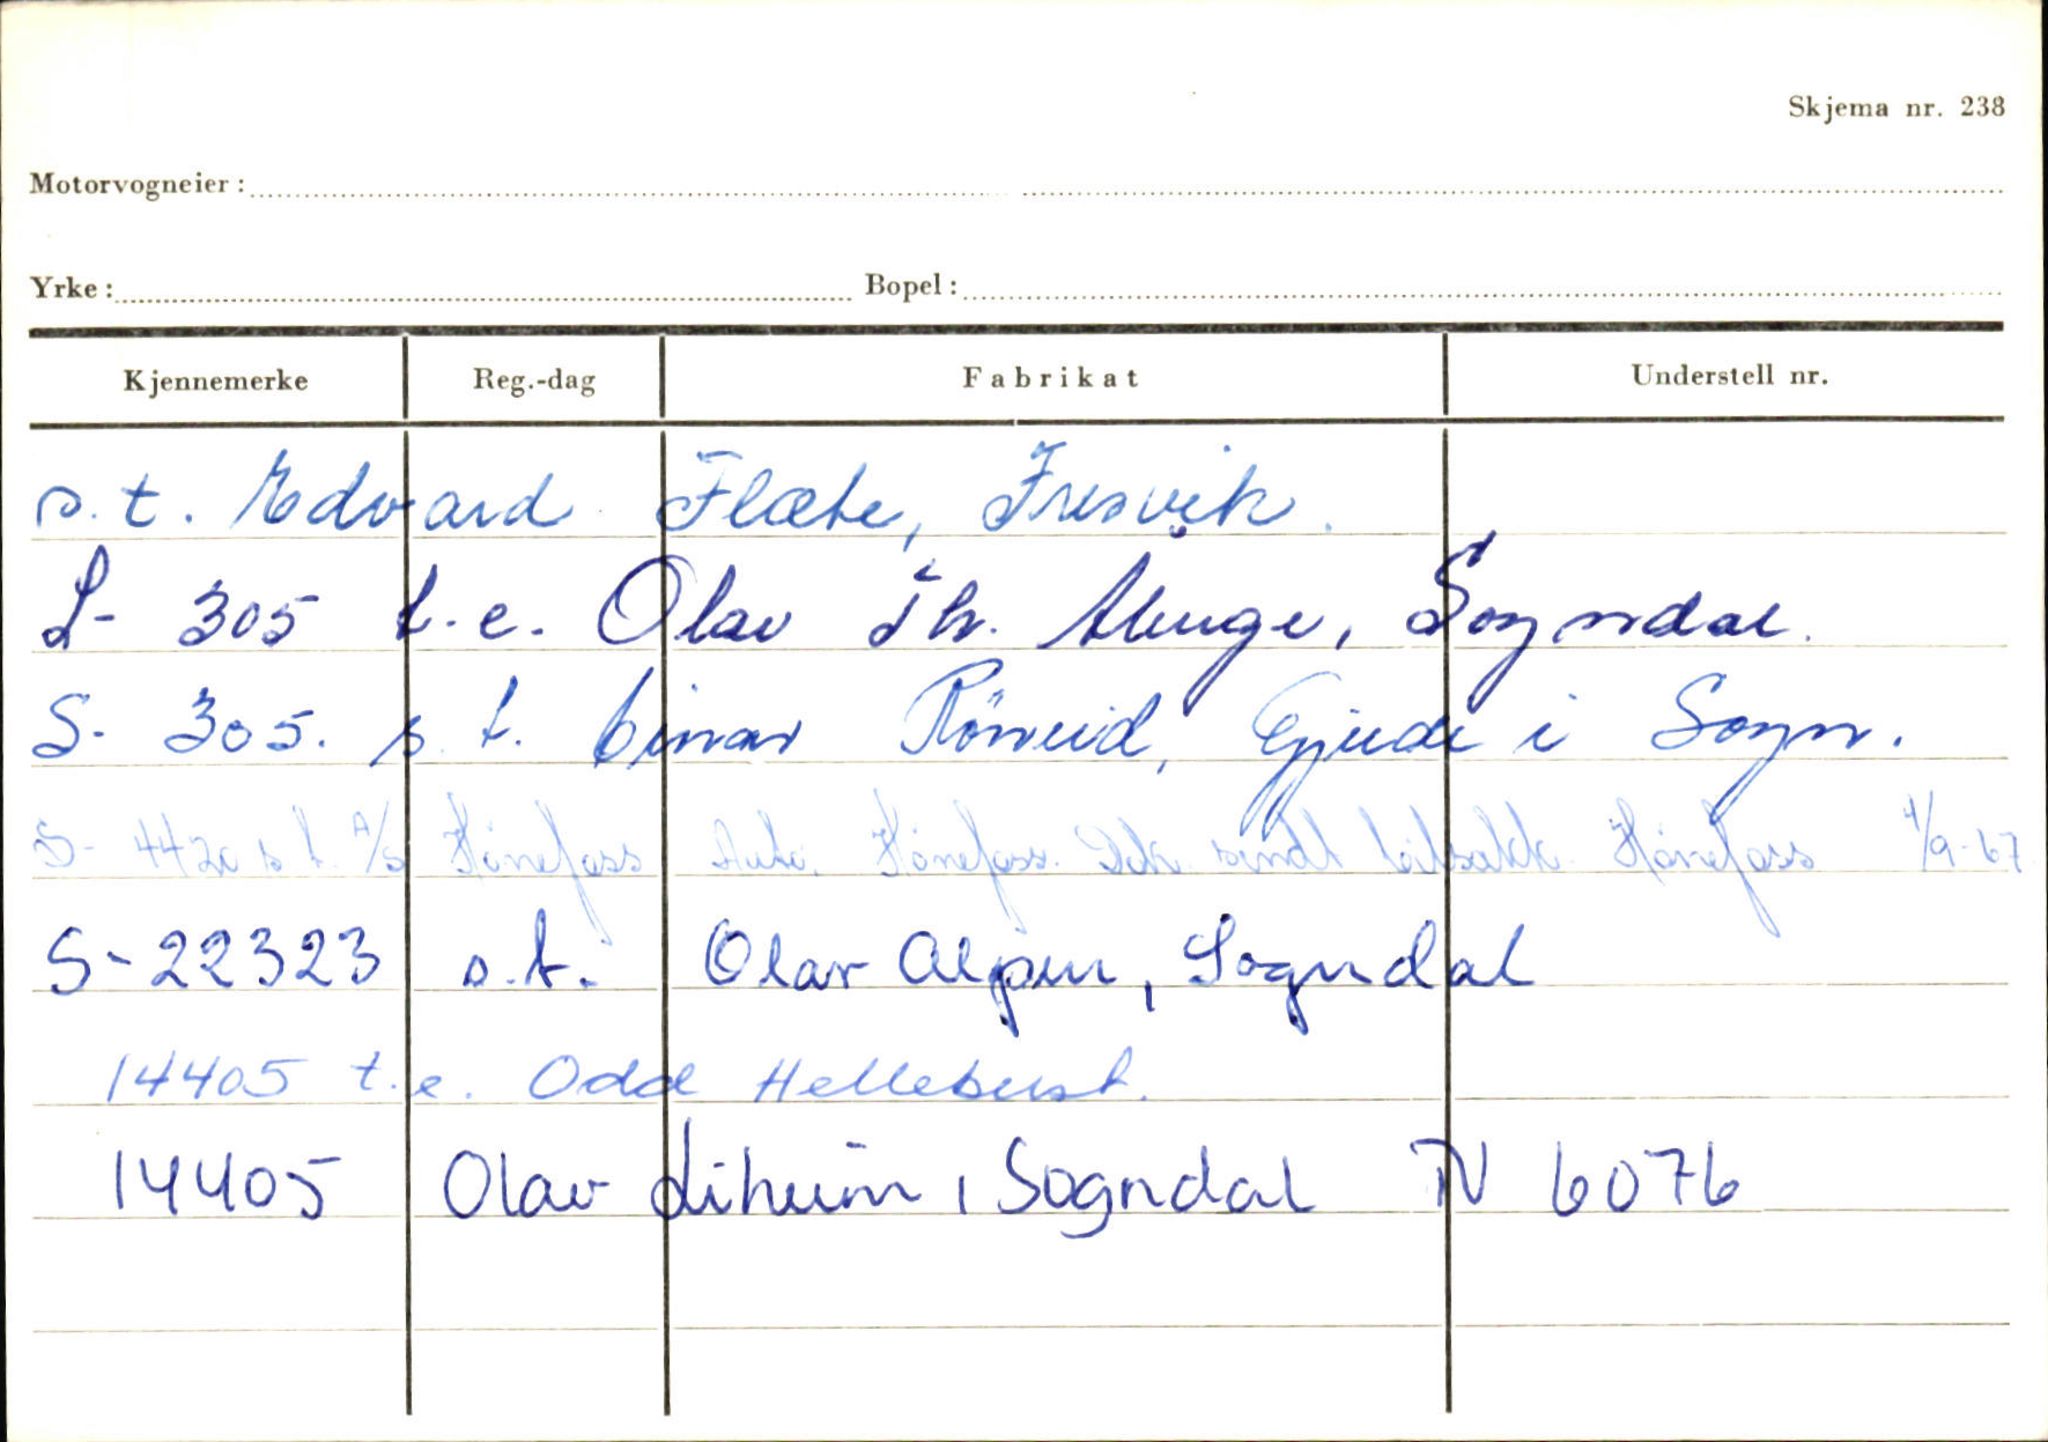 Skjema nr. 238
Motorvogneier:
Yrke: Bopel:
Kjennemerke Reg.-dag Fabrikat Understell nr.
s.t. Edvard Flæte, Fresvik.
305 t.e. Olav Th. Sogndal.
S- 305. s.t. Einar Röneid, i Sogn.
S- 4420 s.t. A/S Hönefoss Auto, Hönefoss. Dok. sendt bilsakk. Hönefoss 4/9-67
S-22323 s.t. Olav Alpen, Sogndal
14405 t.e. Odd Hellebust.
14405 Olav Liheim, Sogndal N 6076